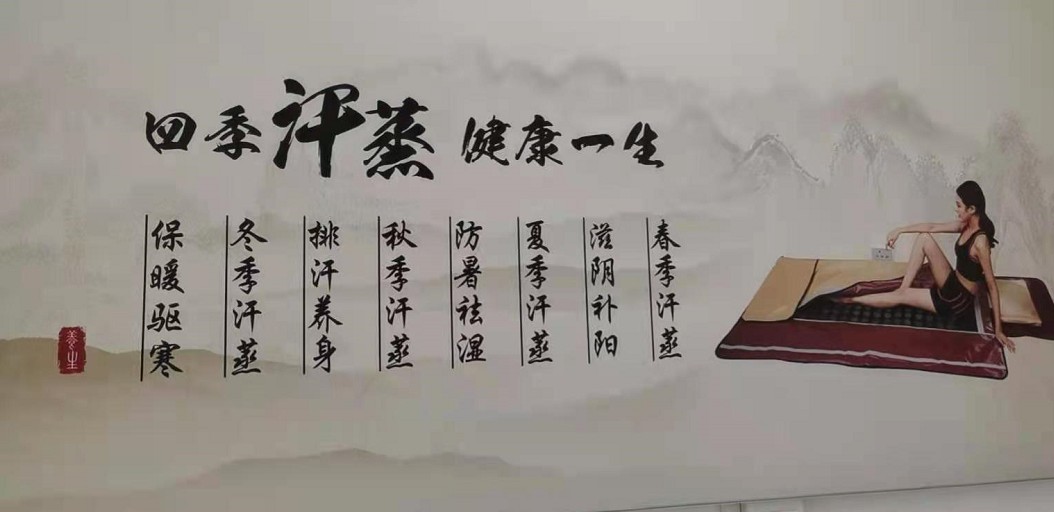 四季汗蒸 健康一生
春季汗蒸
滋阴补阳
夏季汗蒸
防暑祛湿
秋季汗蒸
排汗养身
冬季汗蒸
保暖驱寒
养生